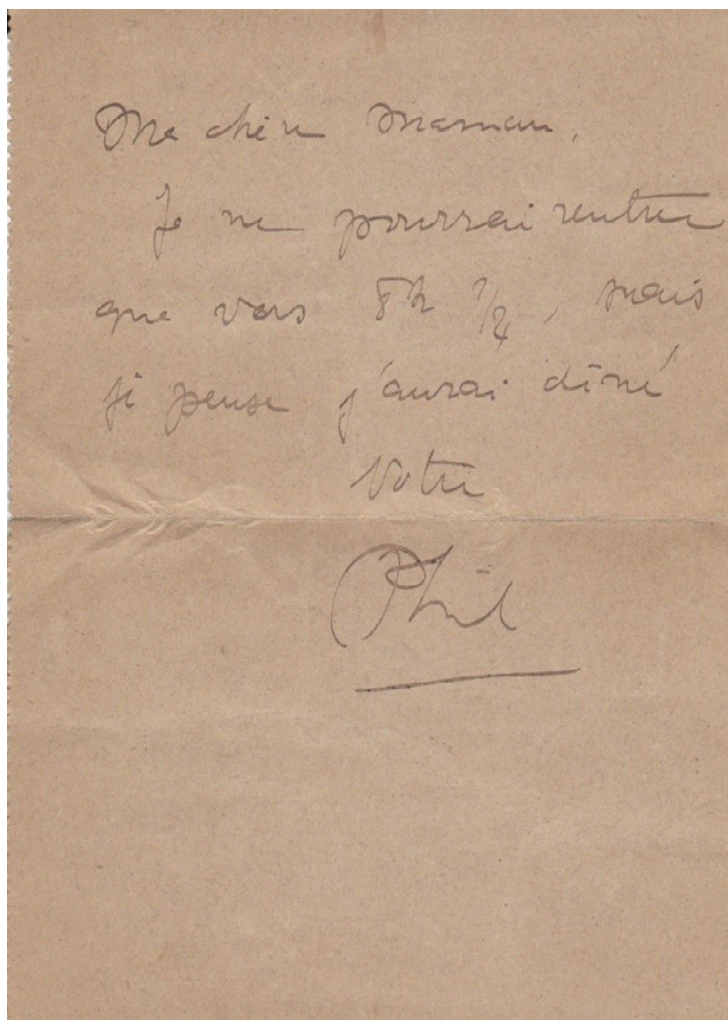 Ma chère Maman,
Je ne pourrai rentrer
que vers 8h 1/2, mais
je pense j'aurai dîné
Votre
Phil